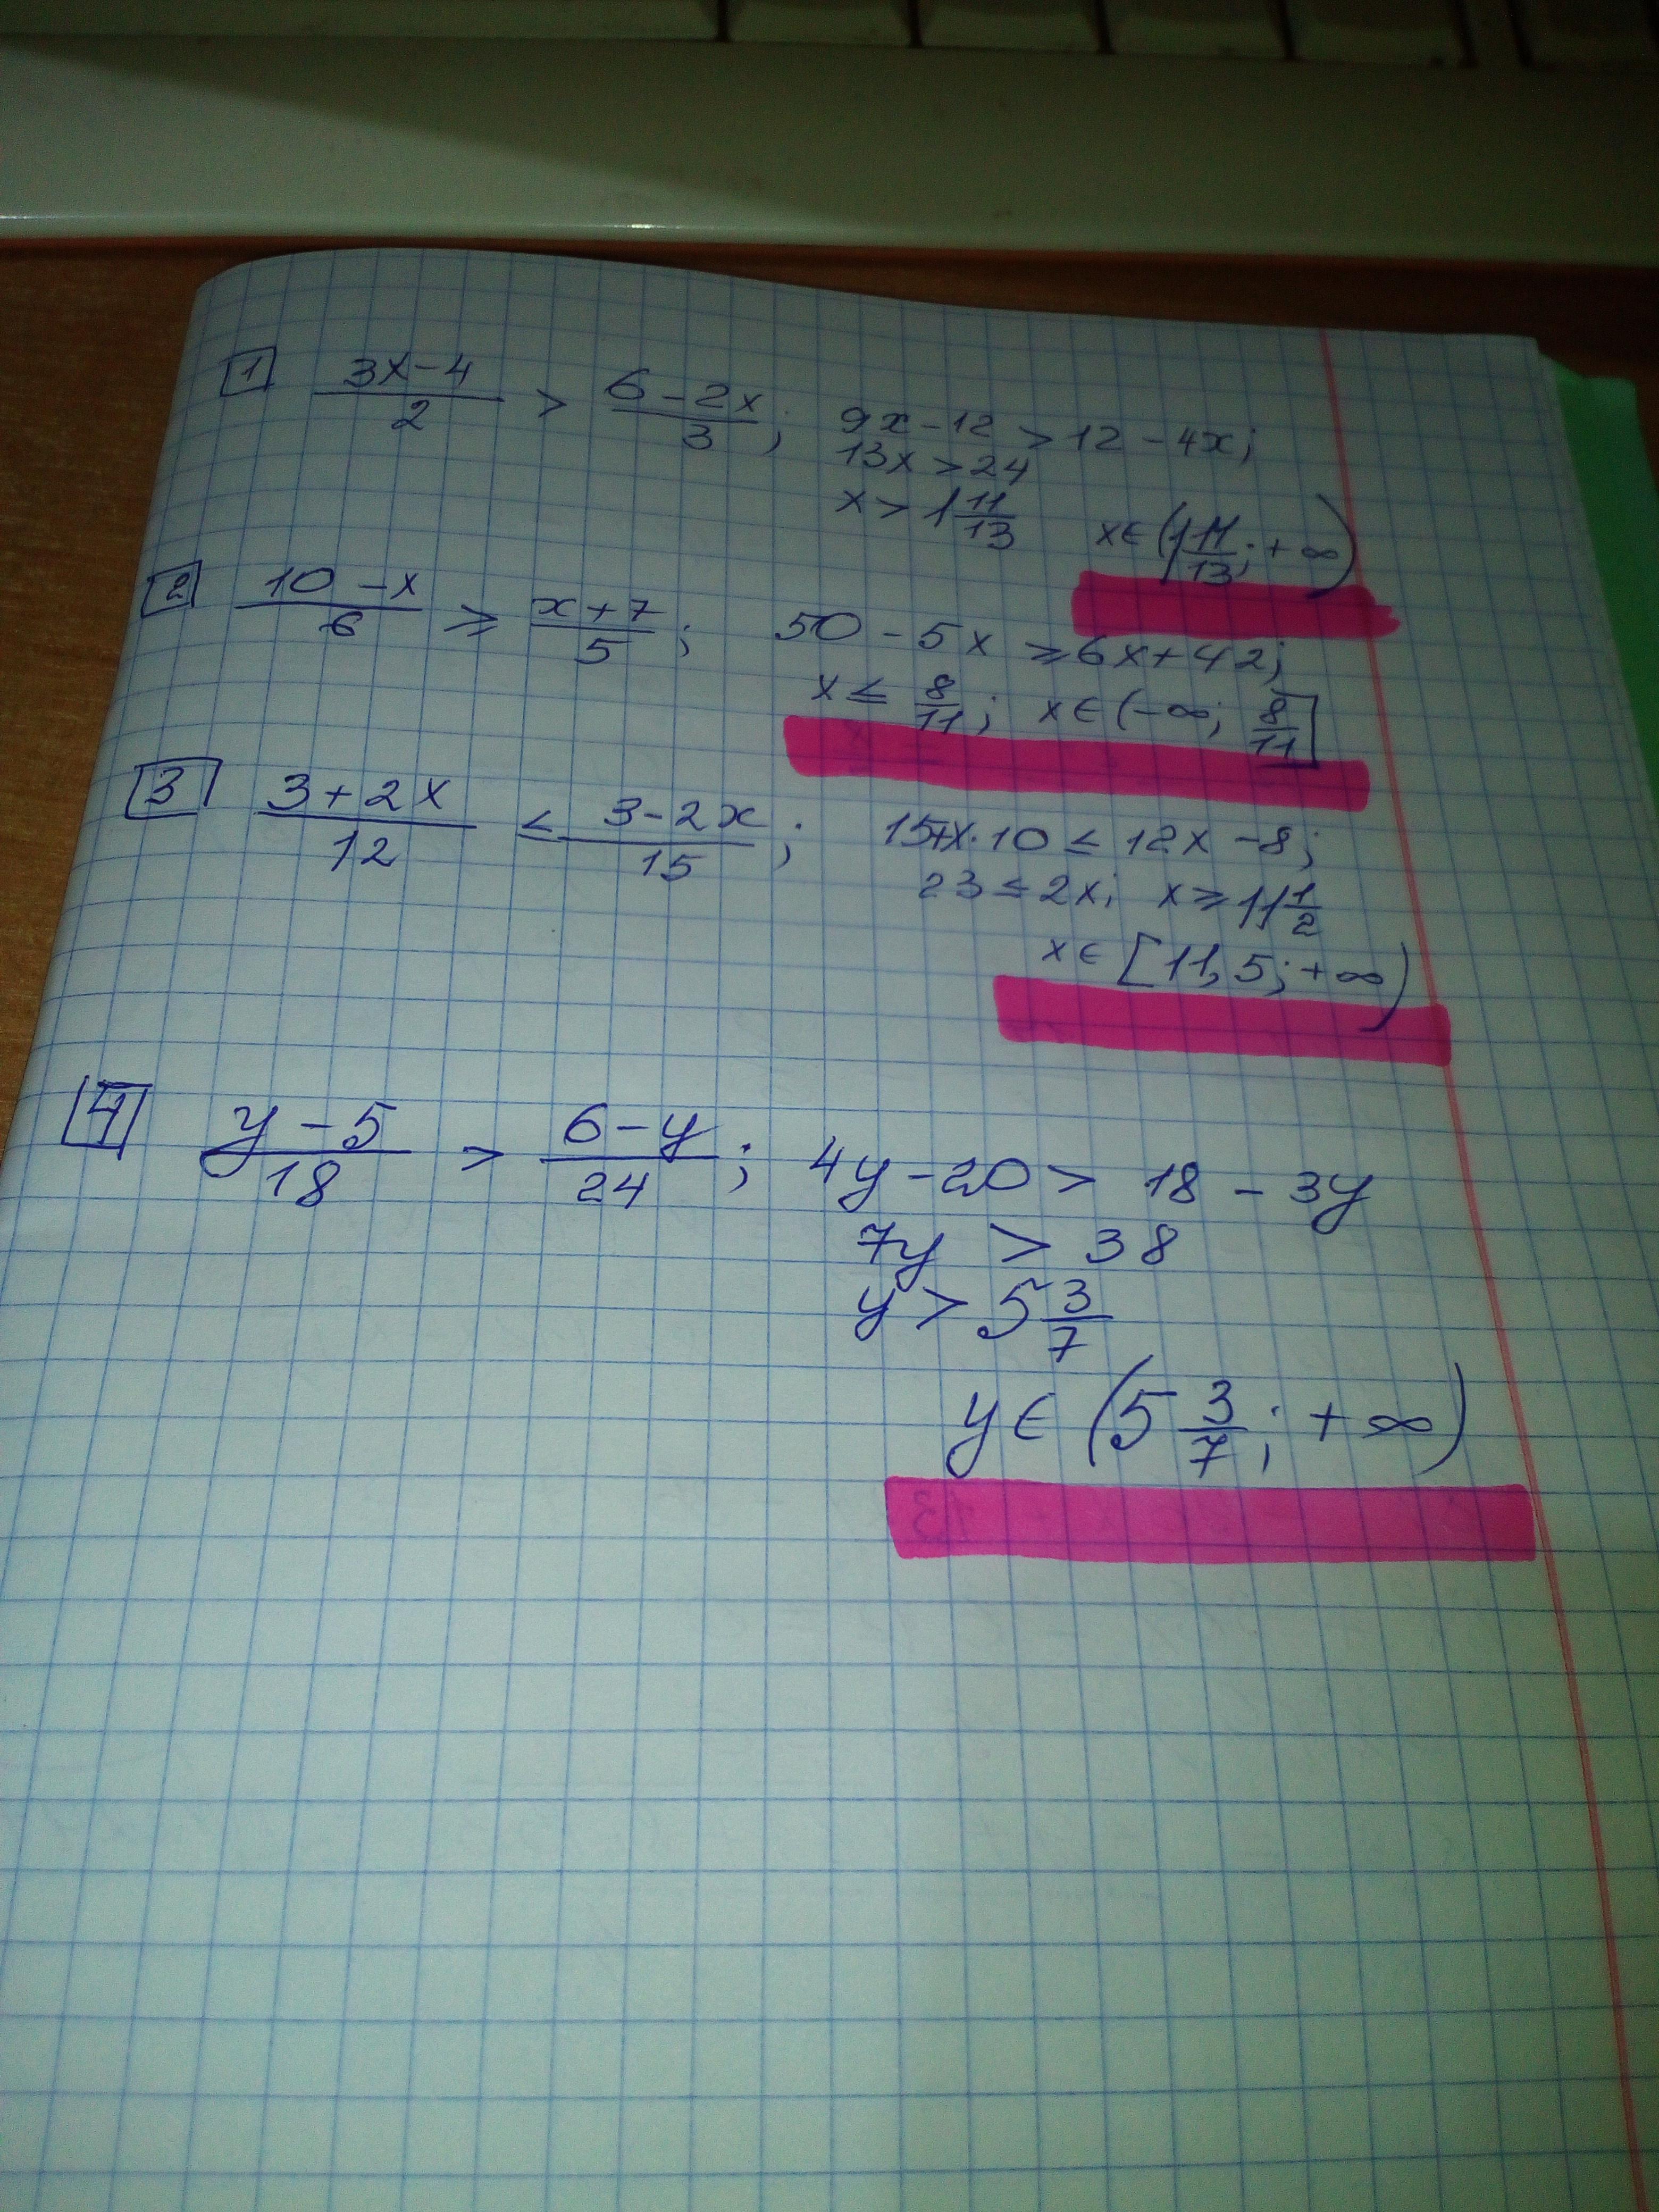 1 (3x-4)/2 > (6-2x)/3; 9x-12 > 12-4x;
13x > 24
x > 1 11/13 x∈(1 11/13; +∞)
2 (10-x)/6 ⩾ (x+7)/5; 50-5x ⩾ 6x+42;
x ≤ 8/11; x∈(-∞; 8/11]
3 (3+2x)/12 ≤ (3-2x)/15; 15+x·10 ≤ 12x-8;
23 ≤ 2x; x ⩾ 11 1/2
x∈[11,5; +∞)
4 (y-5)/18 > (6-y)/24; 4y-20 > 18-3y
7y > 38
y > 5 3/7
y∈(5 3/7; +∞)